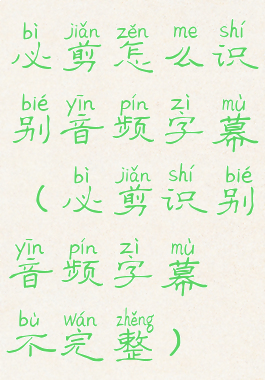 bì jiǎn zěn me shí
必剪怎么识
bié yīn pín zì mù
别音频字幕
bì jiǎn shí bié
（必剪识别
yīn pín zì mù
音频字幕
bù wán zhěng
不完整）